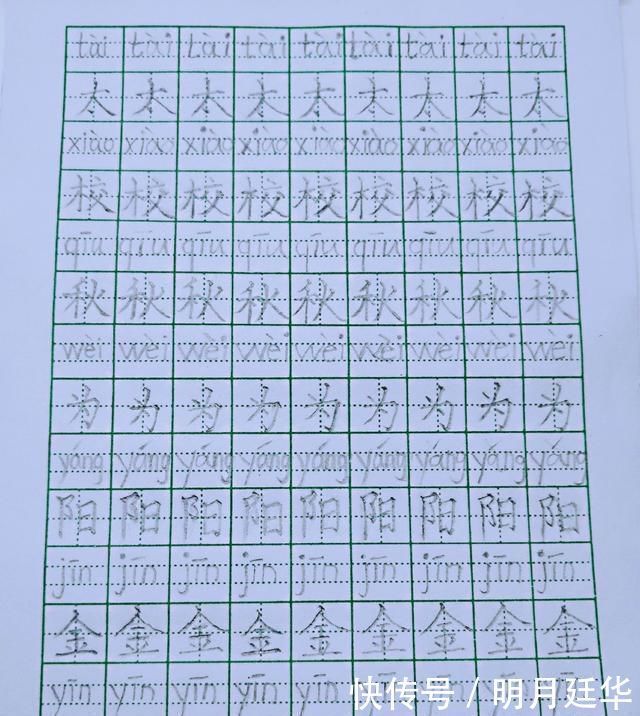 tài tài tài tài tài tài tài tài tài
太 太 太 太 太 太 太 太 太
xiào xiào xiào xiào xiào xiào xiào xiào xiào
校 校 校 校 校 校 校 校 校
qīu qīu qīu qīu qīu qīu qīu qīu qīu
秋 秋 秋 秋 秋 秋 秋 秋 秋
wèi wèi wèi wèi wèi wèi wèi wèi wèi
为 为 为 为 为 为 为 为 为
yáng yáng yáng yáng yáng yáng yáng yáng yáng
阳 阳 阳 阳 阳 阳 阳 阳 阳
jīn jīn jīn jīn jīn jīn jīn jīn jīn
金 金 金 金 金 金 金 金 金
yīn yīn yīn yīn yīn
快传号 / 明月廷华